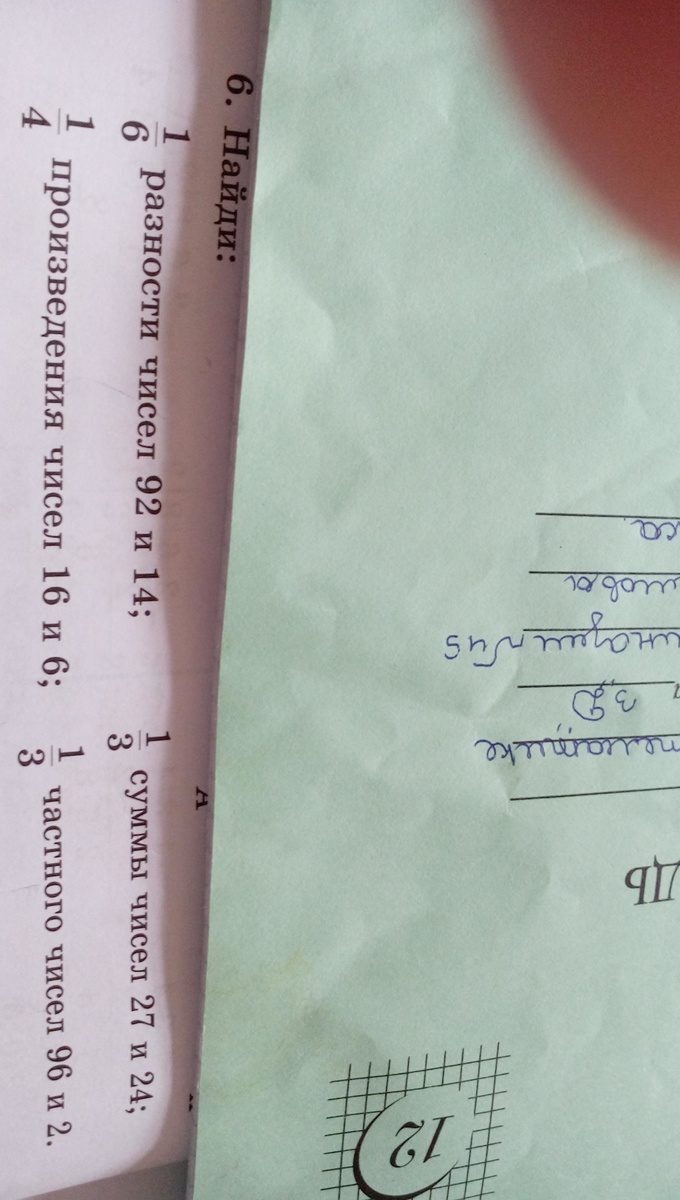 6. Найди:
1/6 разности чисел 92 и 14; 1/3 суммы чисел 27 и 24;
1/4 произведения чисел 16 и 6; 1/3 частного чисел 96 и 2.
ДЬ
3„Д"
№45
12